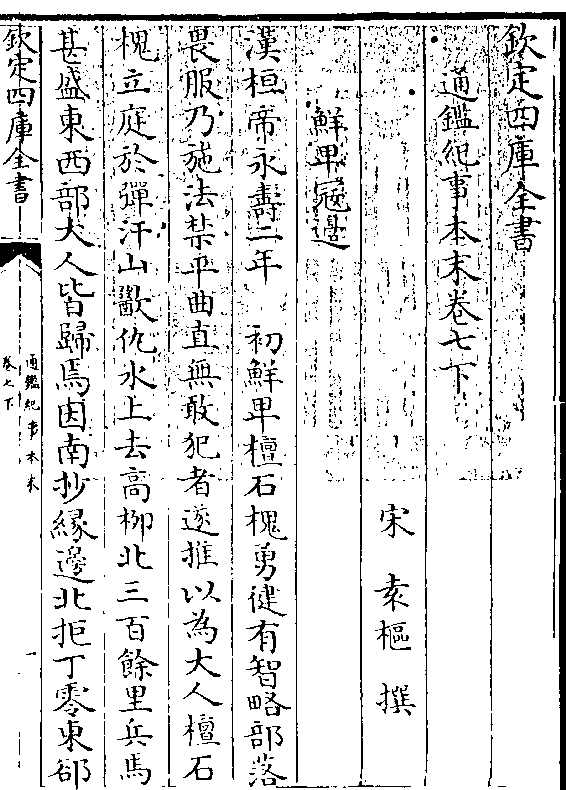 欽定四庫全書
通鑑紀事本末卷七下
宋 袁樞 撰
鮮卑寇邊
漢桓帝永壽二年 初鮮卑檀石槐勇健有智略部落
畏服乃施法禁平曲直無敢犯者遂推以為大人檀石
槐立庭於彈汗山歠仇水上去高柳北三百餘里兵馬
甚盛東西部大人皆歸焉因南抄緣邊北拒丁零東卻
欽定四庫全書
通鑑紀事本末
卷七下
一